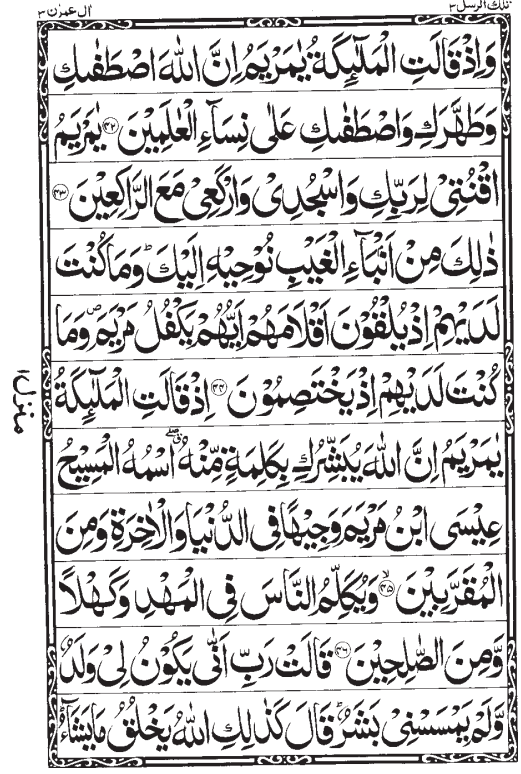 تلك الرسل ٣
اٰل عمرٰن ٣
وَاِذْ قَالَتِ الْمَلٰٓئِكَةُ يٰمَرْيَمُ اِنَّ اللّٰهَ اصْطَفٰىكِ
وَطَهَّرَكِ وَاصْطَفٰىكِ عَلٰى نِسَآءِ الْعٰلَمِيْنَ ﴿٤٢﴾ يٰمَرْيَمُ
اقْنُتِيْ لِرَبِّكِ وَاسْجُدِيْ وَارْكَعِيْ مَعَ الرّٰكِعِيْنَ ﴿٤٣﴾
ذٰلِكَ مِنْ اَنْۢبَآءِ الْغَيْبِ نُوْحِيْهِ اِلَيْكَ ؕ وَمَا كُنْتَ
لَدَيْهِمْ اِذْ يُلْقُوْنَ اَقْلَامَهُمْ اَيُّهُمْ يَكْفُلُ مَرْيَمَ ۪ وَمَا
كُنْتَ لَدَيْهِمْ اِذْ يَخْتَصِمُوْنَ ﴿٤٤﴾ اِذْ قَالَتِ الْمَلٰٓئِكَةُ
يٰمَرْيَمُ اِنَّ اللّٰهَ يُبَشِّرُكِ بِكَلِمَةٍ مِّنْهُ ۖۗ اسْمُهُ الْمَسِيْحُ
عِيْسَى ابْنُ مَرْيَمَ وَجِيْهًا فِي الدُّنْيَا وَالْاٰخِرَةِ وَمِنَ
الْمُقَرَّبِيْنَ ۙ﴿٤٥﴾ وَيُكَلِّمُ النَّاسَ فِي الْمَهْدِ وَكَهْلًا
وَّمِنَ الصّٰلِحِيْنَ ﴿٤٦﴾ قَالَتْ رَبِّ اَنّٰى يَكُوْنُ لِيْ وَلَدٌ
وَّلَمْ يَمْسَسْنِيْ بَشَرٌ ؕ قَالَ كَذٰلِكِ اللّٰهُ يَخْلُقُ مَا يَشَآءُ ؕ
منزل ١